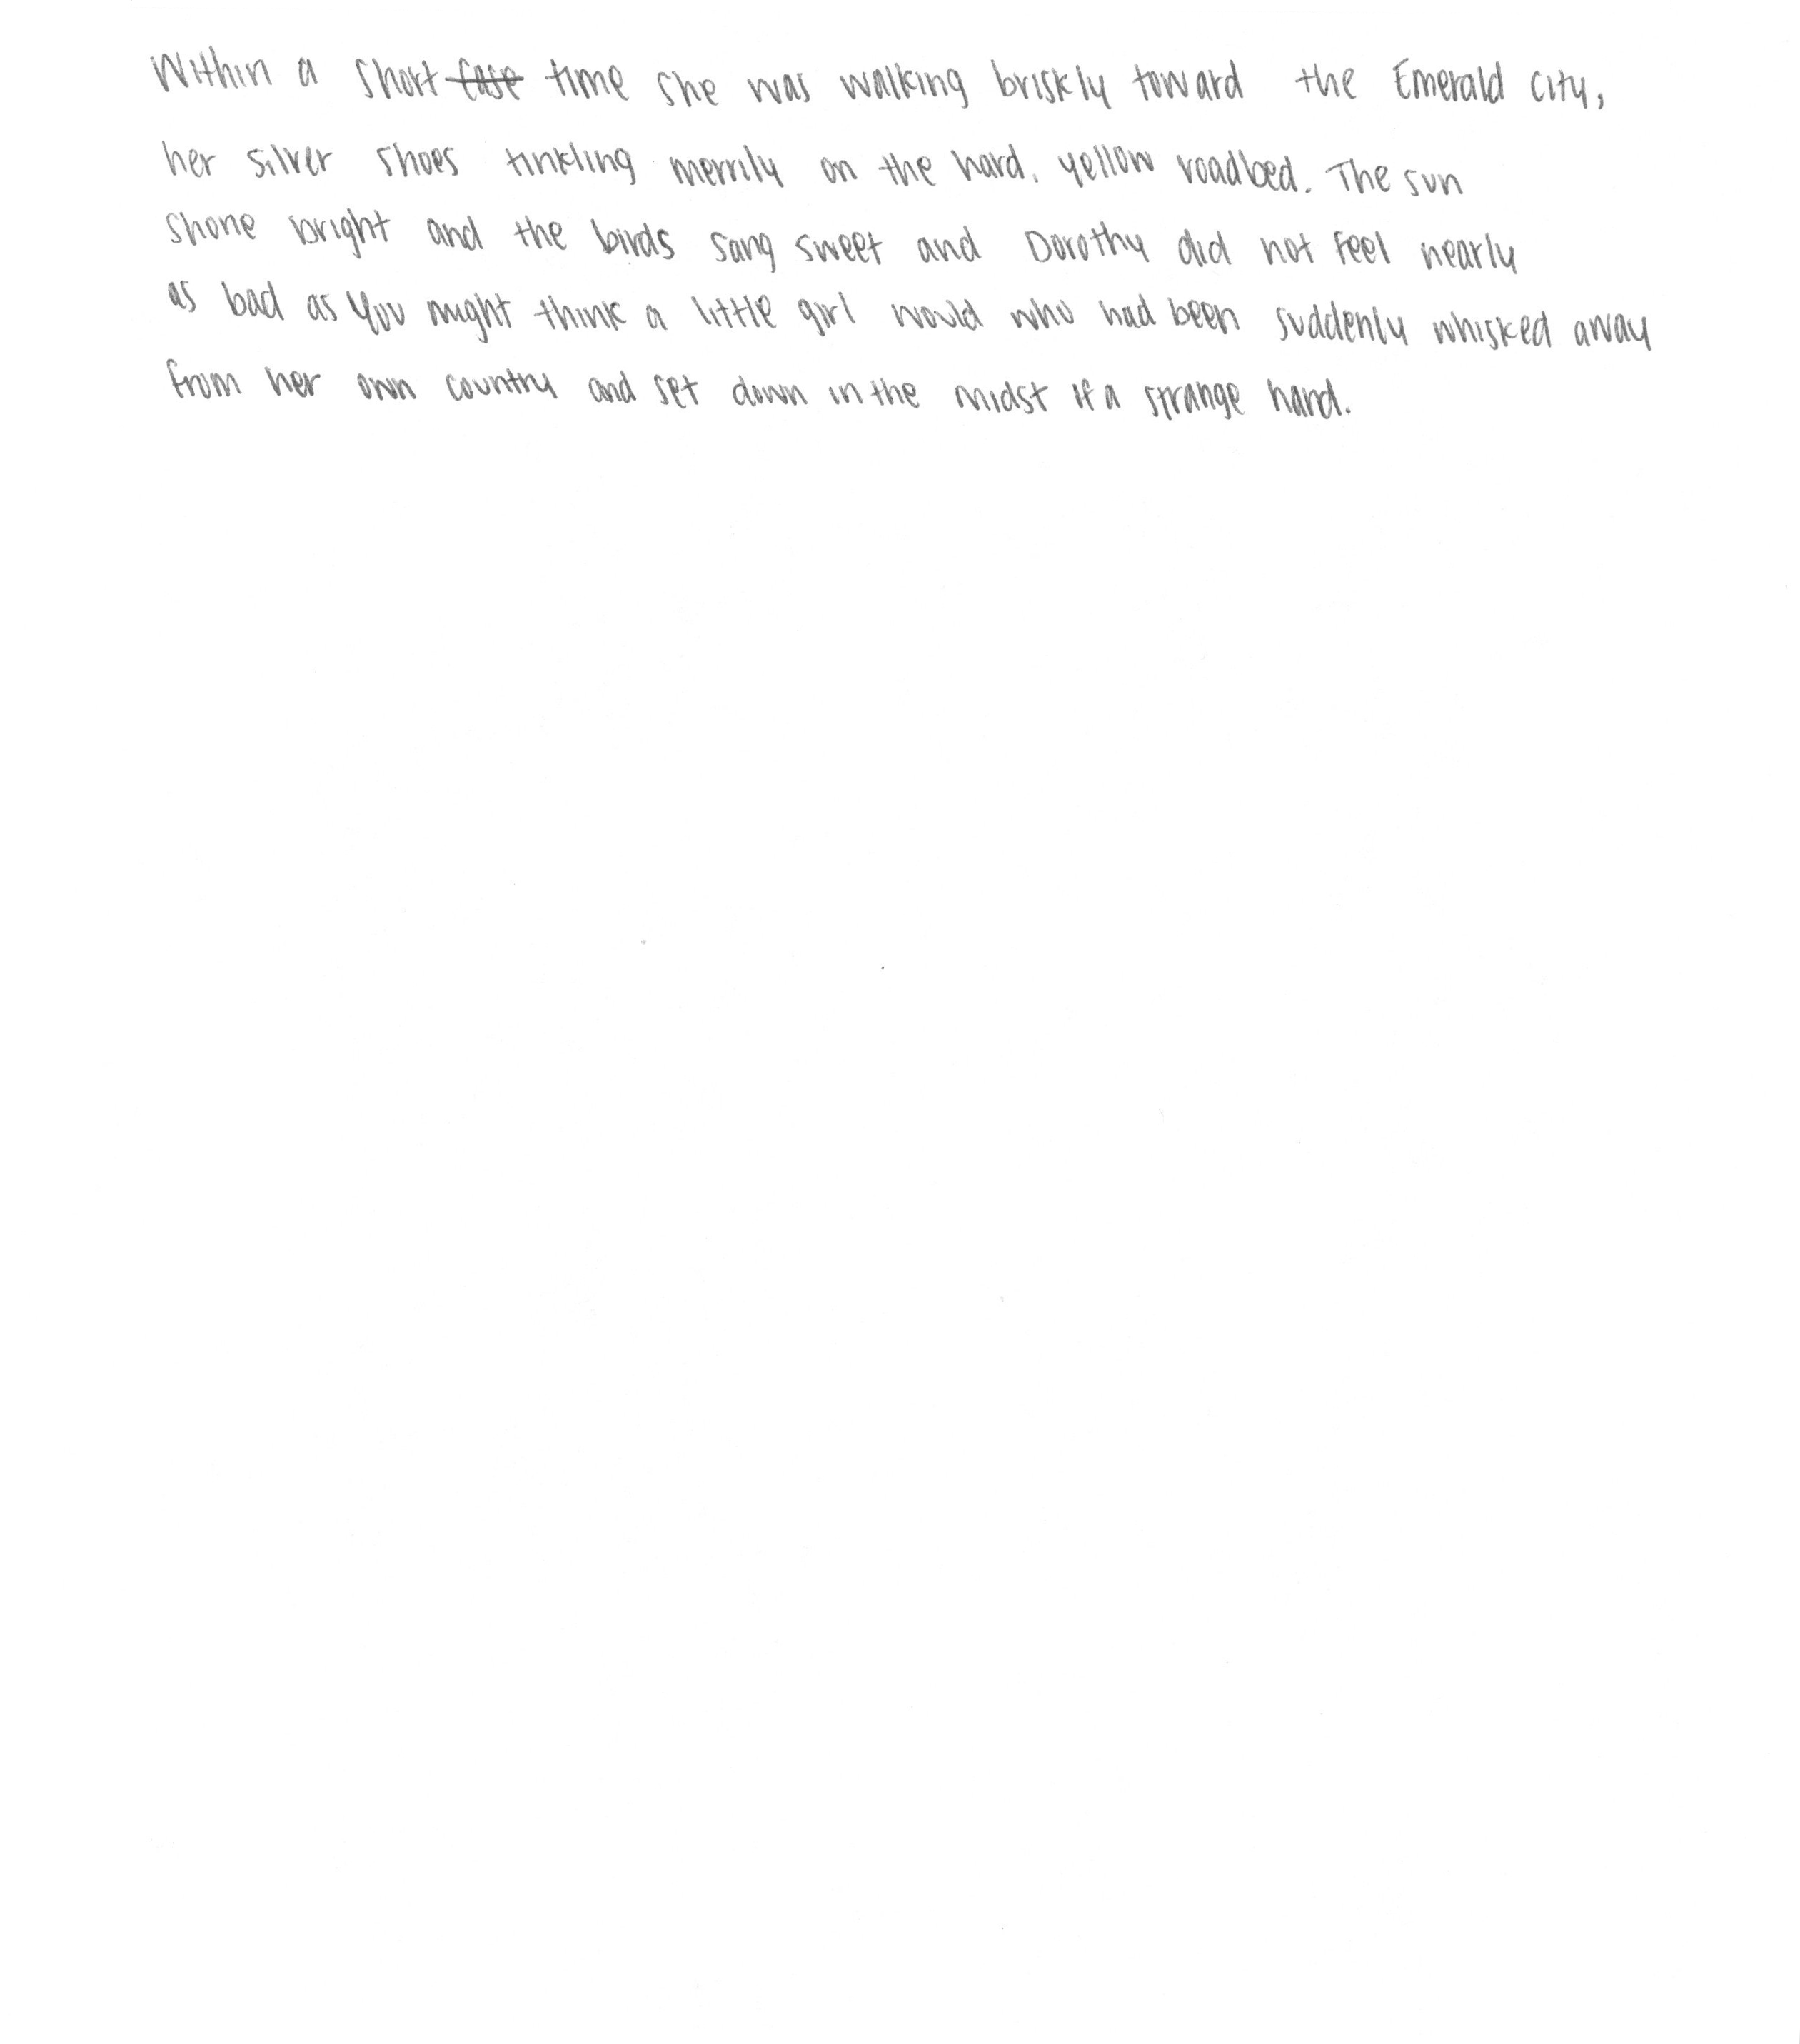 Within a short case time she was walking briskly toward the Emerald City,
her silver shoes tinkling merrily on the hard, yellow roadbed. The sun
shone bright and the birds sang sweet and Dorothy did not feel nearly
as bad as you might think a little girl would who had been suddenly whisked away
from her own country and set down in the midst if a strange hand.